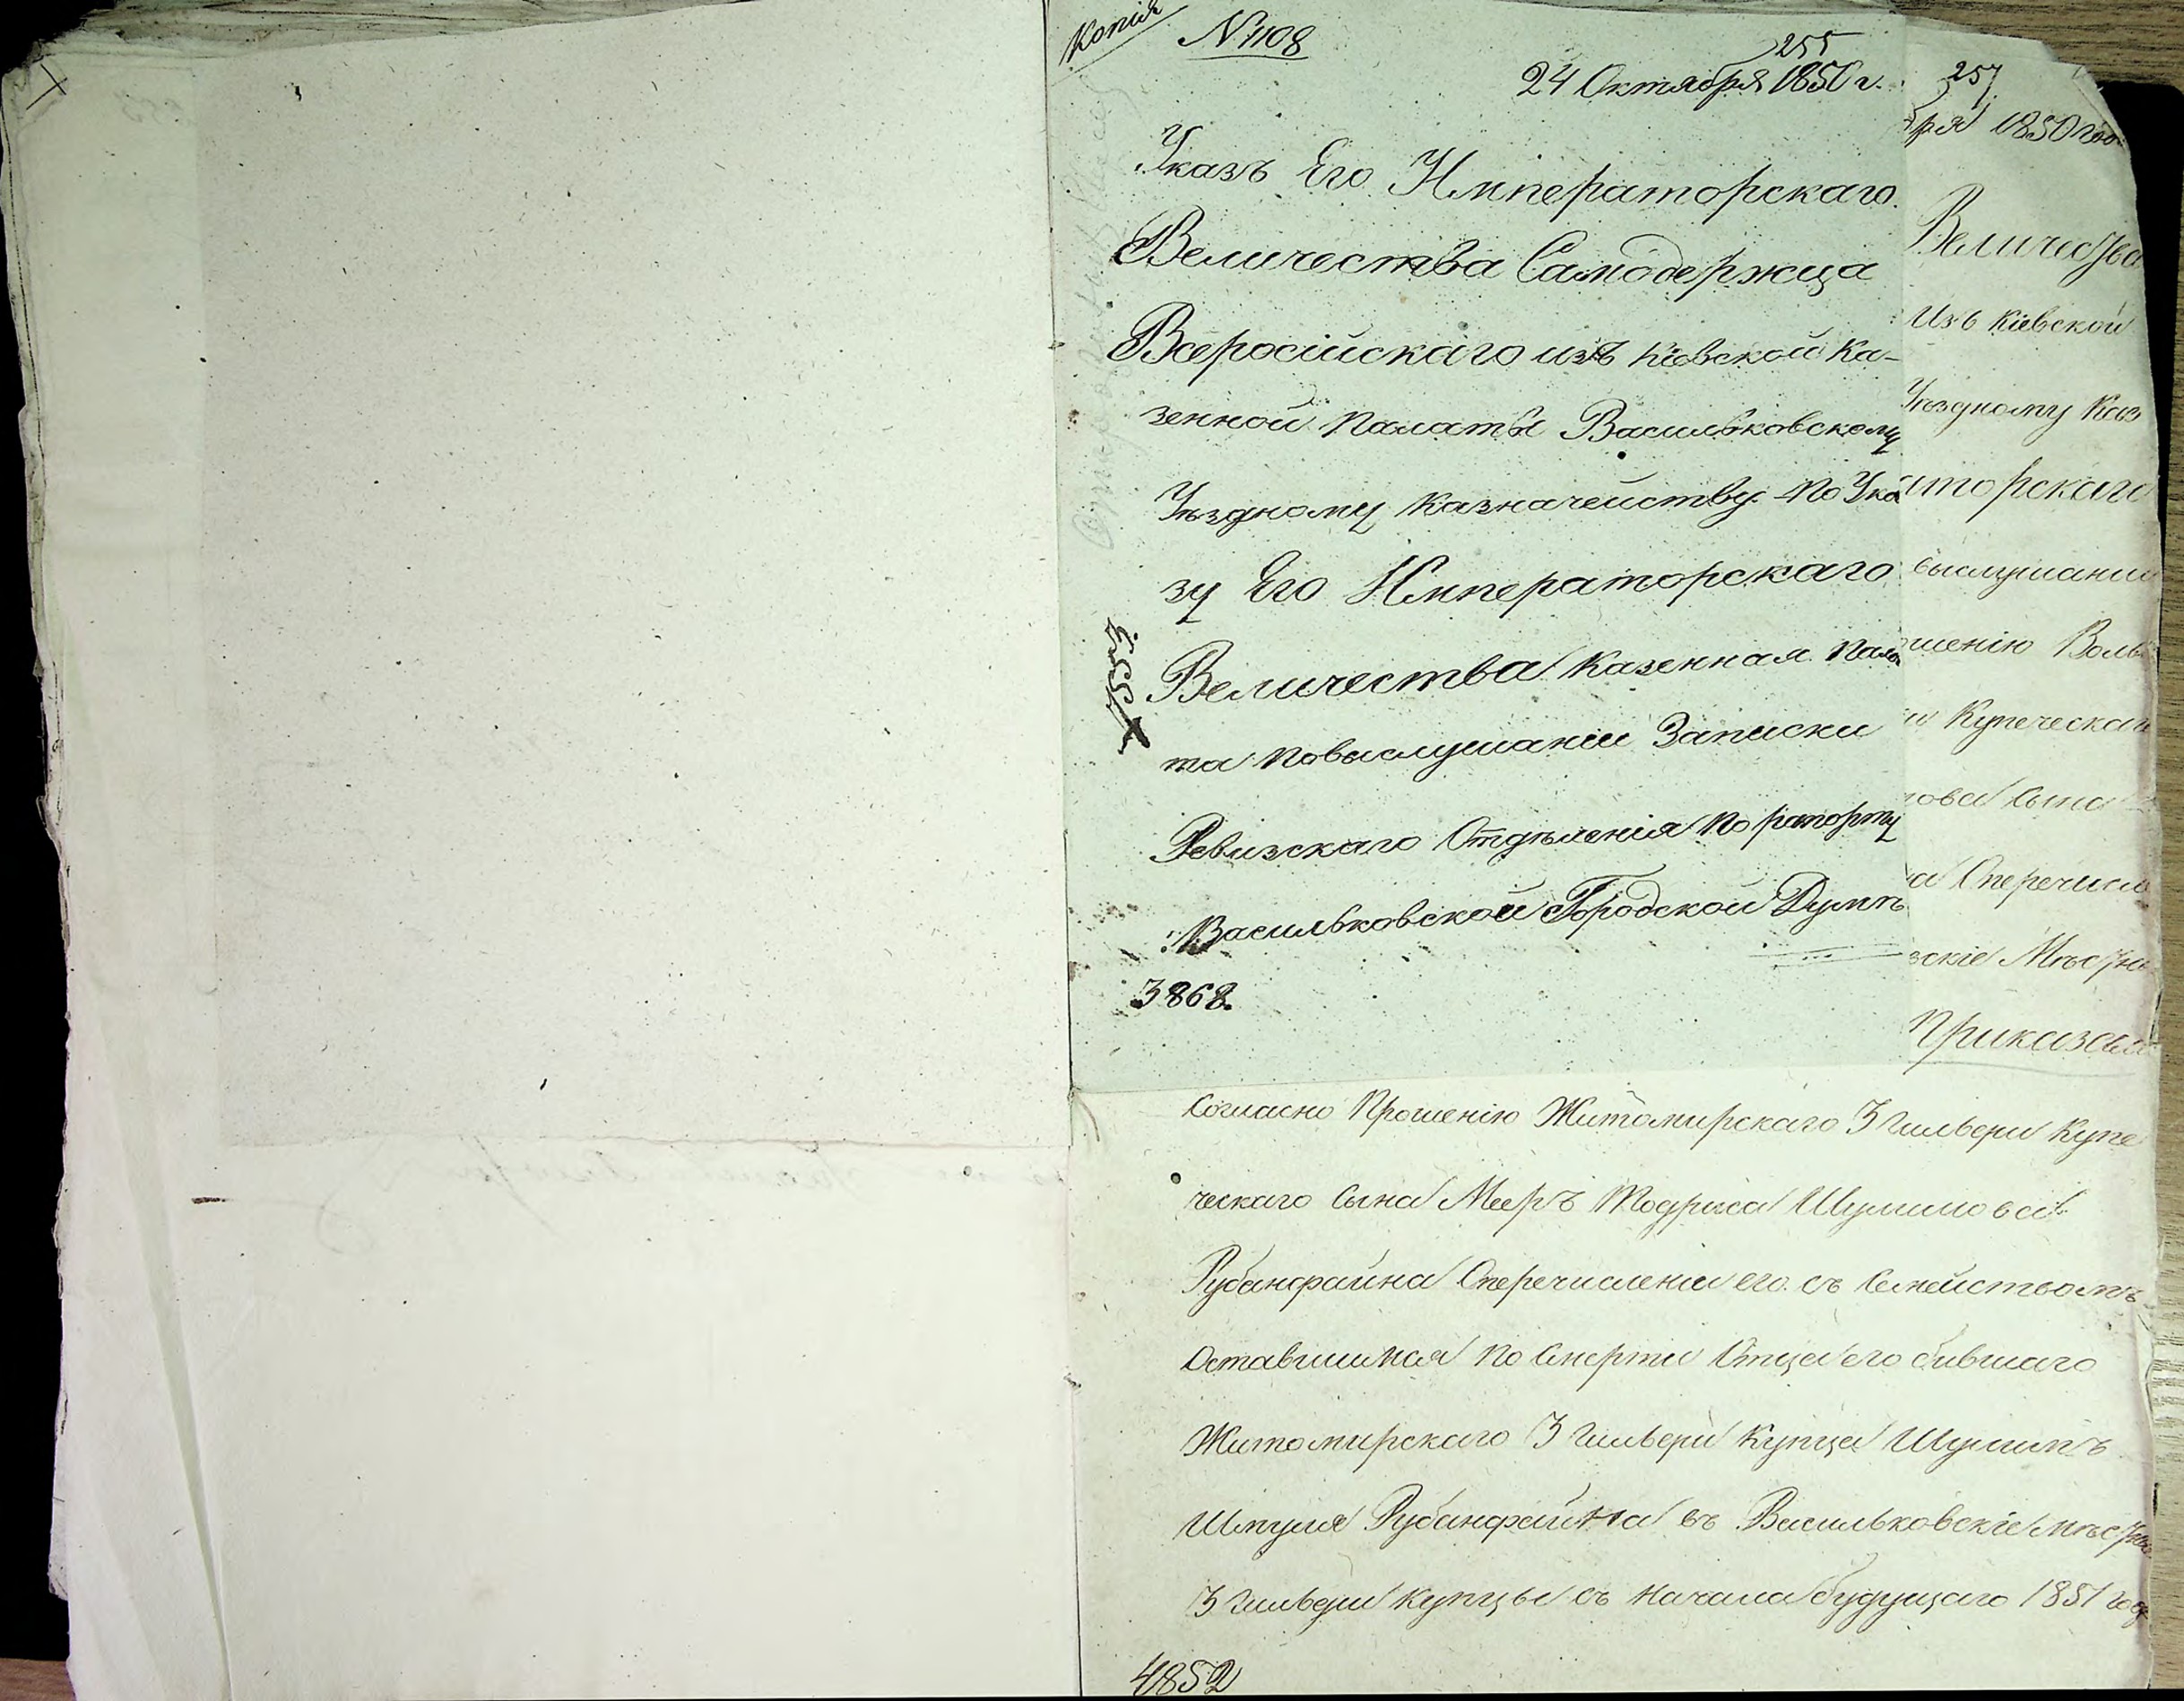 Копія
N 1108
255
24 Октября 1850 г.
Указъ Его Императорскаго
Величества Самодержца
Всеросійскаго изъ Кіевской Ка-
зенной Палаты Васильковскому
Уѣздному Казначейству По Ука
зу Его Императорскаго
Величества Казенная Пала
та Повыслушаніи Записки
Ревизскаго Отдѣленія По рапорту
Васильковской Городской Думѣ
3868.
257
бря 1850 го
Величества
Изъ Кіевской
Уѣздному Каз
аторскаго
выслушаніи
шенію Волы
и Купеческаго
нова Сына
а Оперечисле
вскіе Мѣстн
Приказали
Согласно Прошенію Житомирскаго 3 Гильдіи Купе
ческаго Сына Мееръ Тодриса Шулимова
Рубанфайна Оперечисленіи его съ Семействомъ
Оставшимся По Смерти Отца его бившаго
Житомирскаго 3 Гильдіи Купца Шулимъ
Шмуля Рубанфайна въ Васильковскіе мѣстные
3 Гильдіи Купцы съ Начала будущаго 1851 год
4852